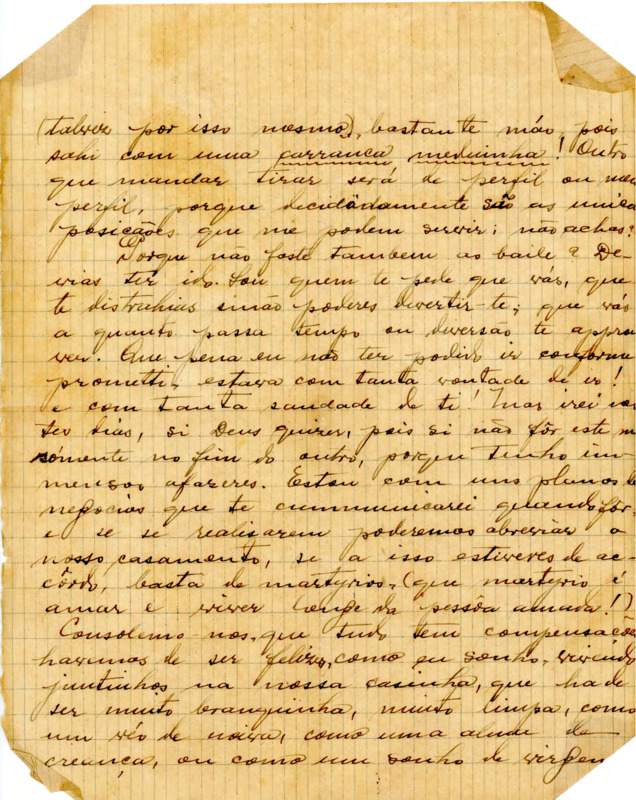 (talvez por isso mesmo), bastante máo, pois
sahi com uma carranca meduinha! Outro
que mandar tirar será de perfil ou meu
perfil, porque decididamente são as unicas
posicações que me podem servir; não achas?
Porque não foste tambem ao baile? De-
vias ter ido. Sou quem te pede que vás, que
te distrahias sinão poderes divertir-te; que vás
a quanto passa tempo ou diversão te aprou
ver. Que pena eu não ter podido ir conforme
prometti, estava com tanta vontade de ir!
e com tanta saudade de ti! Mas irei
tes dias, si Deus quizer, pois si não fôr este m
sómente no fim do outro, porque tenho im-
mensos afazeres. Estou com uns planos de
negocios que te cummunicarei quando fôr,
e se se realisarem poderemos abreviar o
nosso casamento, se a isso estiveres de ac-
côrdo, basta de martyrios, (que martyrio é
amar e viver longe da pessôa amada!)
Consolemo nos, que tudo tem compensações
havemos de ser felizes, como eu sonho, vivendo
juntinhos na nossa casinha, que ha de
ser muito branquinha, muito limpa, como
um véo de noiva, como uma alma de
creança, ou como um sonho de virgem